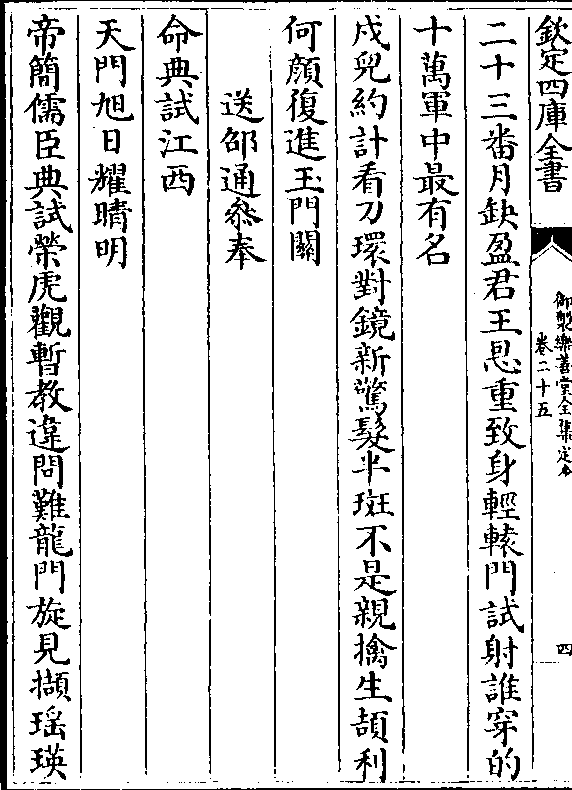 欽定四庫全書
御製樂善堂全集定本
卷二十五
四
二十三番月缺盈君王恩重致身輕轅門試射誰穿的
十萬軍中最有名
戍兒約計看刀環對鏡新驚髮半斑不是親擒生頡利
何顏復進玉門關
送邵通叅奉
命典試江西
天門旭日耀晴明
帝簡儒臣典試榮虎觀暫教違問難龍門旋見擷瑶瑛